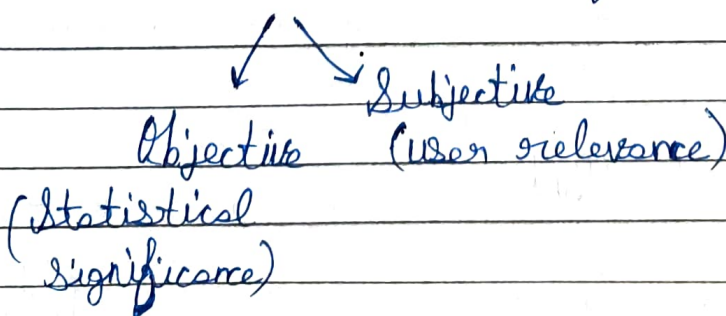 Subjective
Objective (user relevance)
(Statistical
significance)